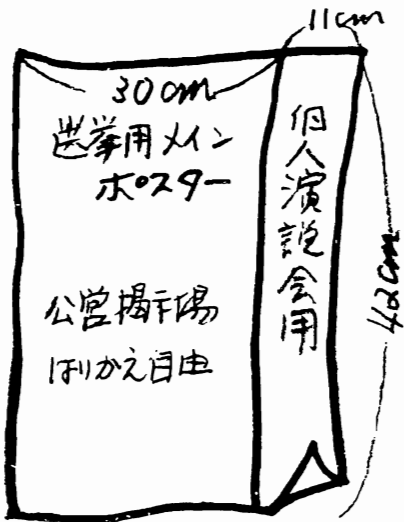 11cm
30cm
選挙用メイン
ポスター
公営掲示場
はりかえ自由
個人演説会用
42cm